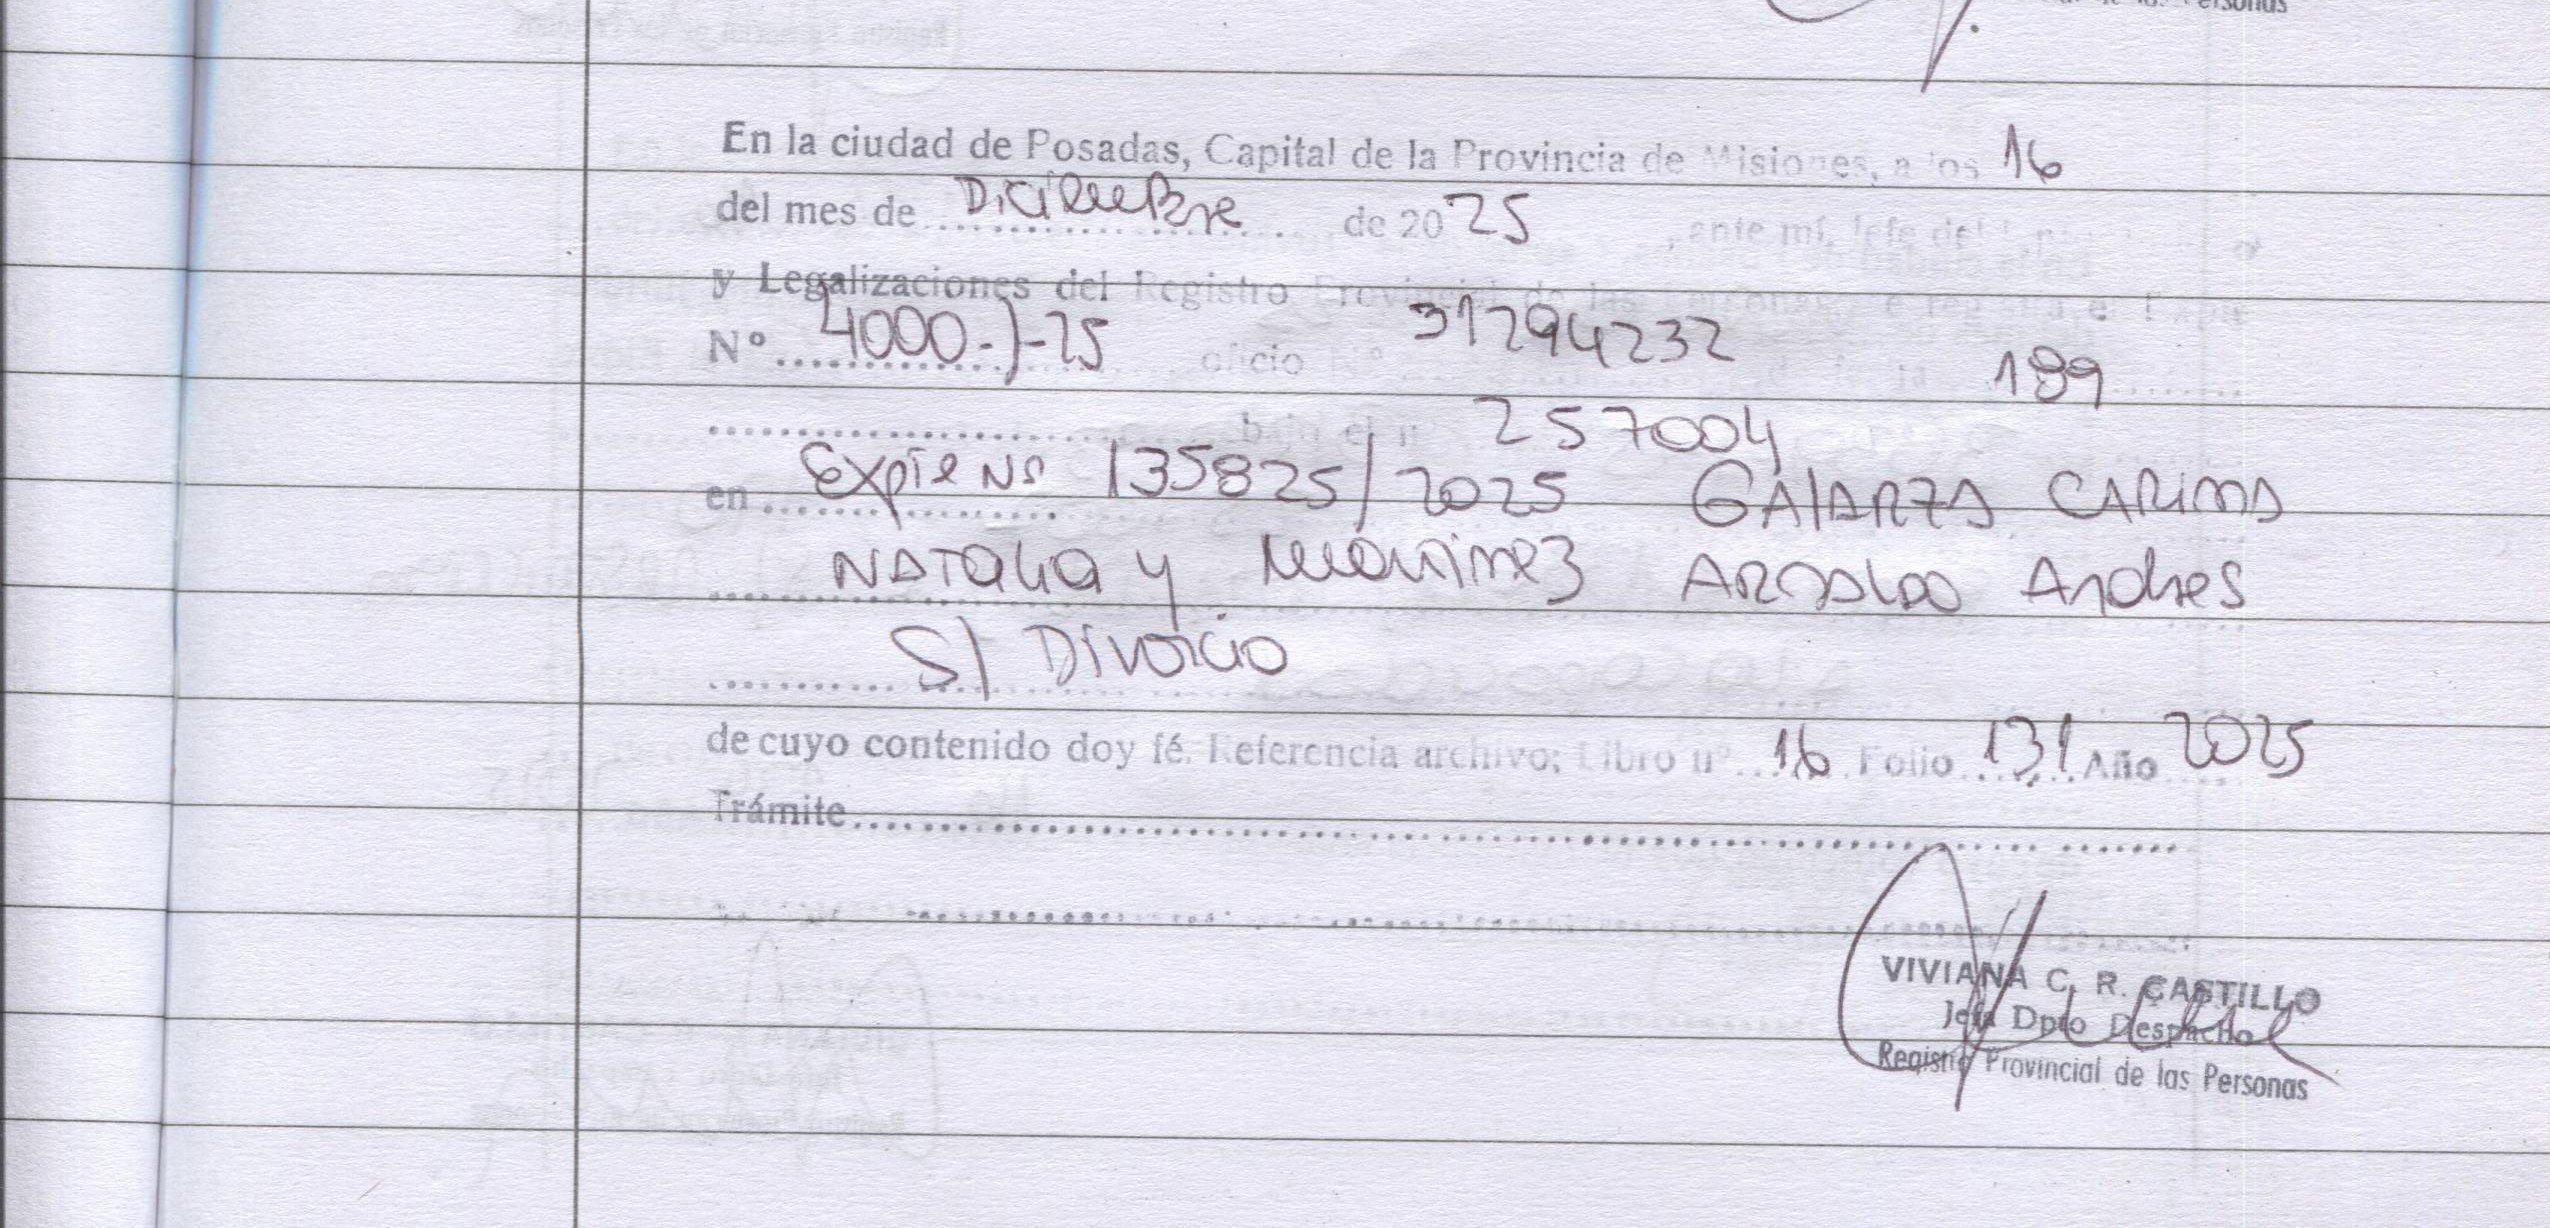 de las Personas
En la ciudad de Posadas, Capital de la Provincia de Misiones, a los 16
del mes de Diciembre de 2025, ante mí, Jefe del
y Legalizaciones del Registro Provincial de las Personas, se registra el
Nº 4000-J-25 oficio Nº 31294232 189
bajo el nº 257004
en Expte Nº 135825/2025 GALARZA CARINA
NATALIA y MARTINEZ ARNALDO Andres
S/ Divorcio
de cuyo contenido doy fé. Referencia archivo; Libro nº 16 Folio 131 Año 2025
Trámite
VIVIANA C. R. CASTILLO
Jefa Dpto Despacho
Registro Provincial de las Personas